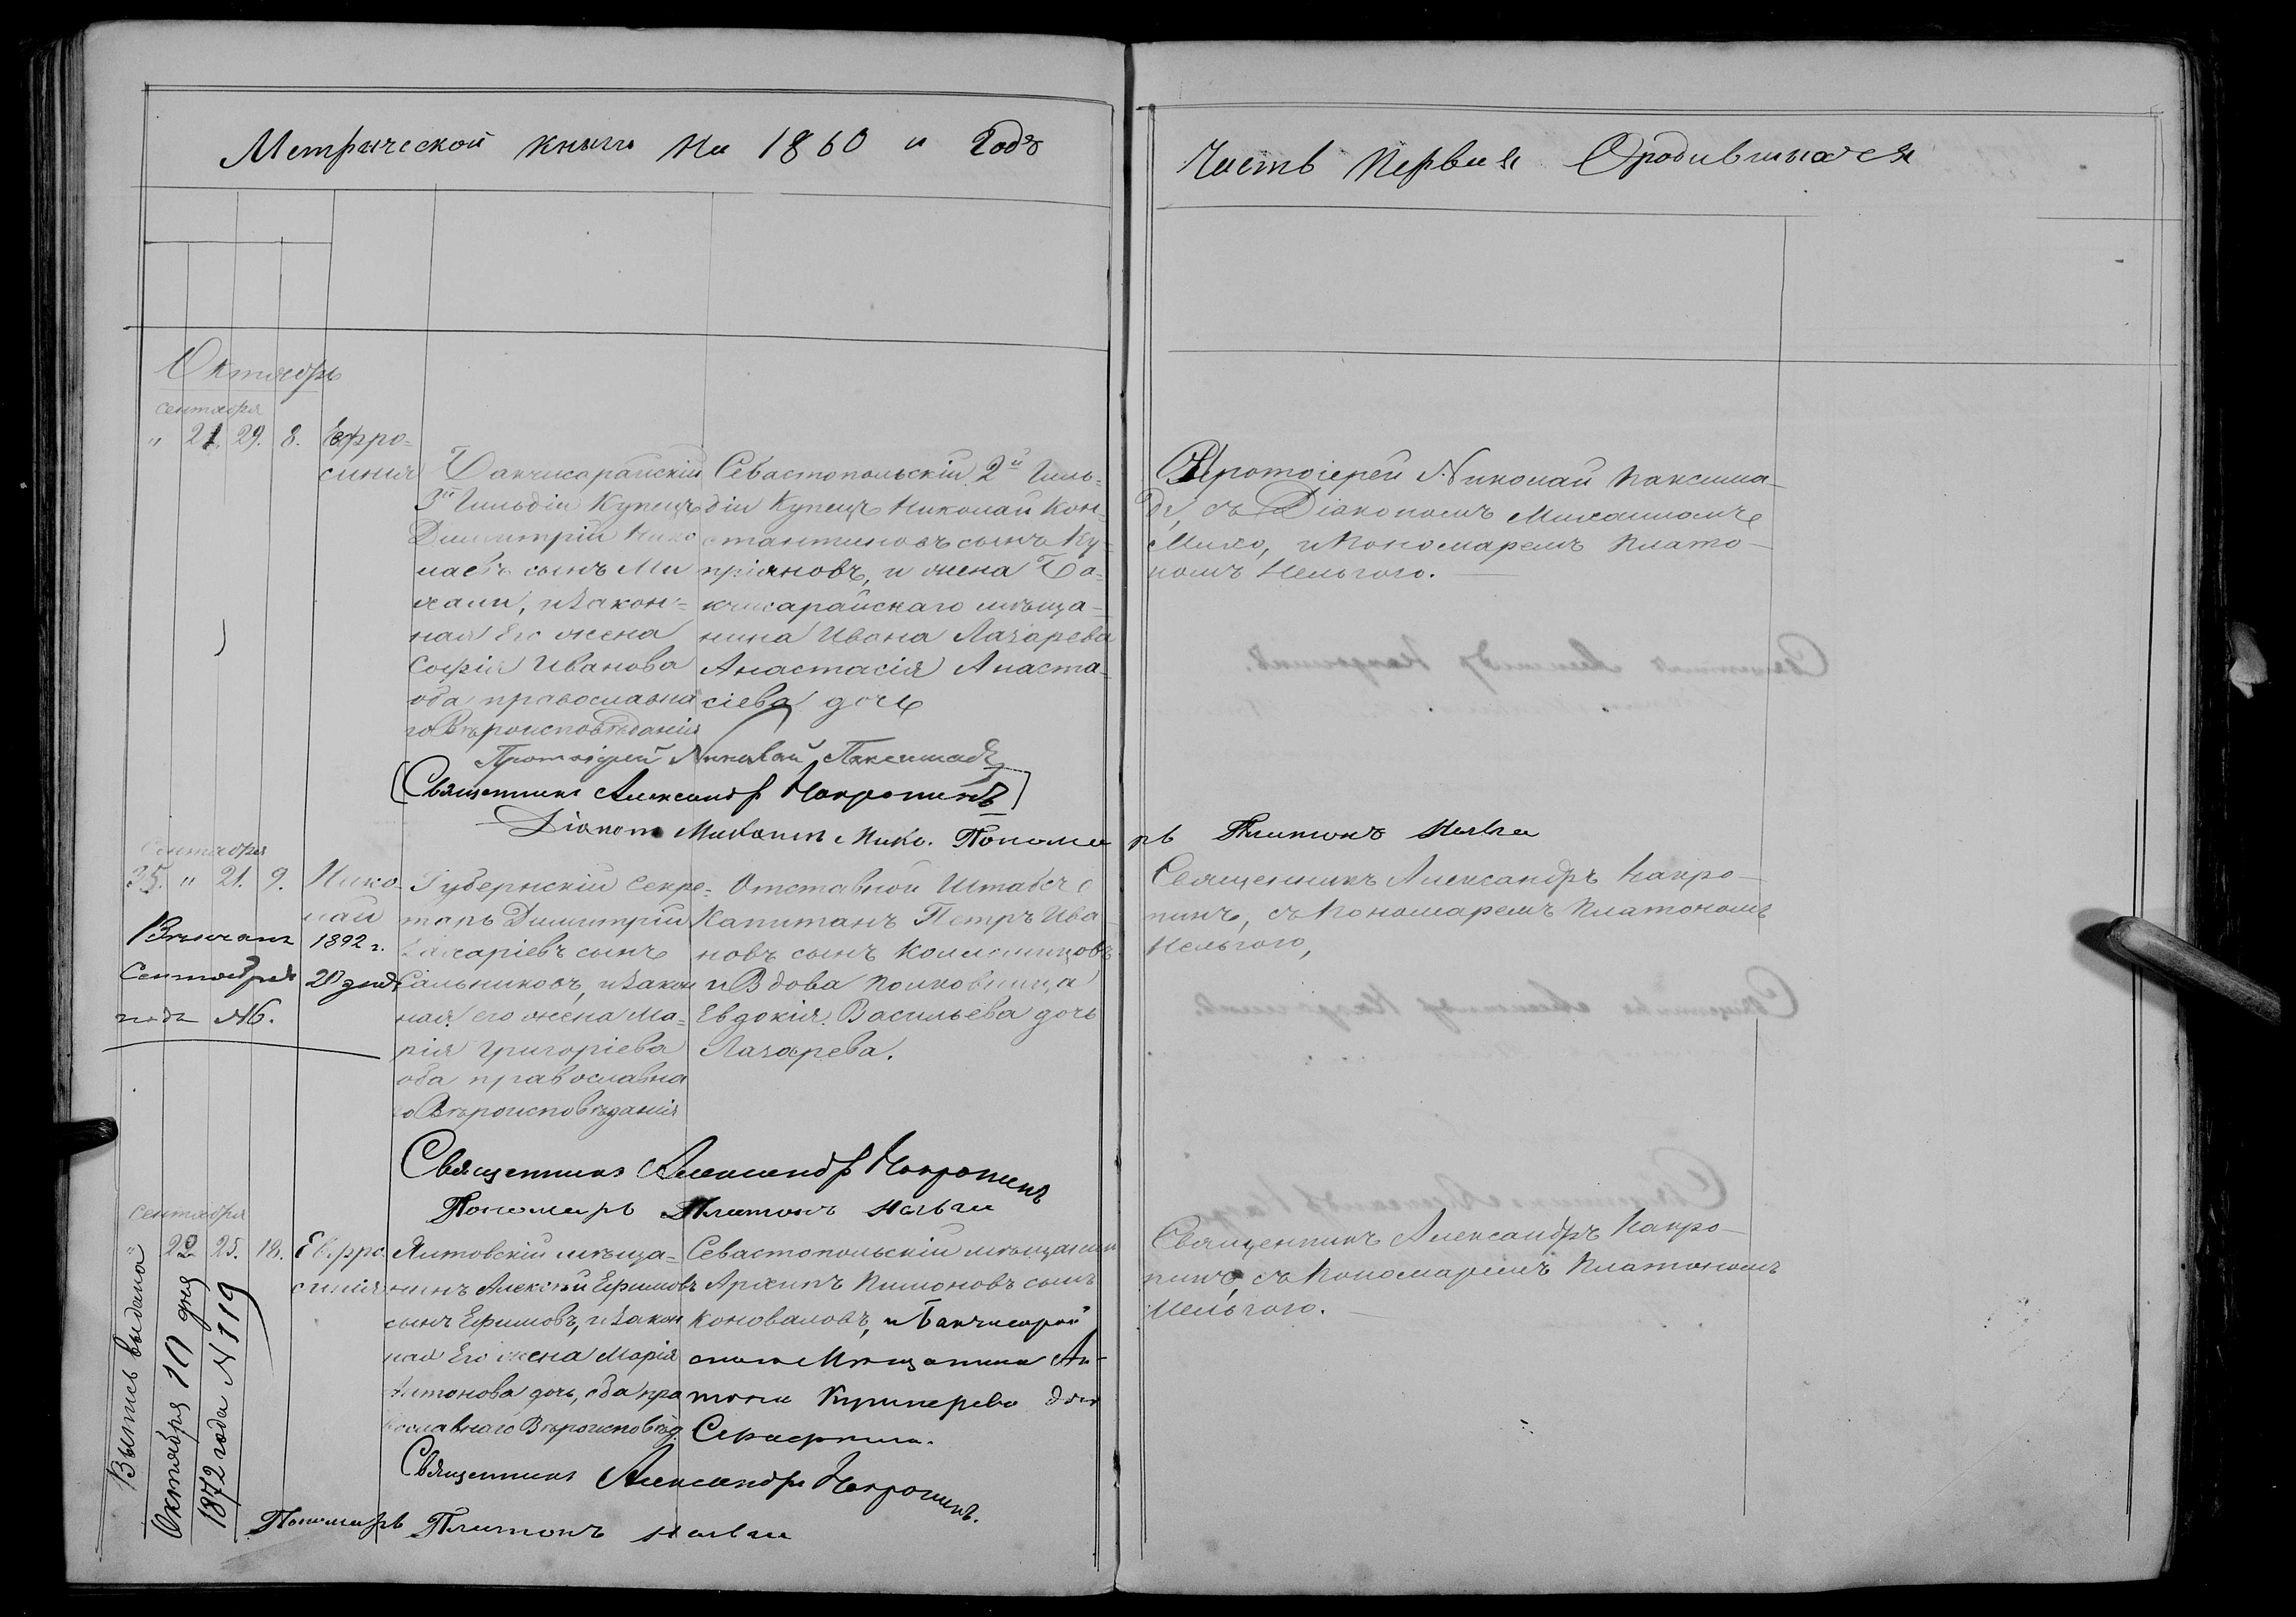 Метрической книги на 1860й годъ
Часть Первая О родившихся
Октябрь
сентября
" 21. 29. 8. Ефро-
синия
Бакчисарайскій
3й Гильдіи Купецъ
Димитрій Нико
лаевъ сынъ Ми
хали, и закон-
ная Его жена
Софія Иванова
оба православна
го Вѣроисповѣданія
Севастопольскій 2й Гиль-
діи Купецъ Николай Кон-
стантиновъ сынъ Ку-
пріяновъ, и жена Ба-
кчисарайскаго мѣща-
нина Ивана Лазарева
Анастасія Анаста-
сіева дочь
Протоіерей Николай Паксима-
де, съ Діакономъ Михаиломъ
Мико, и Пономаремъ Плато-
номъ Нельгого.
Протоіерей Николай Паксимаде
Священникъ Александръ
Діаконъ Михаилъ Мико. Пономарь Платонъ
Сентября
" 21. 9. Нико-
лай
Губернскій Секре-
тарь Димитрій
Захаріевъ сынъ
Сальниковъ, и закон
ная его жена Ма-
рія Григоріева
оба православна
го Вѣроисповѣданія
Отставной Штабсъ
Капитанъ Петръ Ива
новъ сынъ Коломийцовъ
и Вдова Полковница
Евдокія Васильева дочь
Лазарева.
Священникъ Александръ Накро-
пинъ, съ Пономаремъ Платономъ
Нельгого,
Вѣнчанъ 1892 г.
Сентября 20 дня
подъ №6.
Священникъ Александръ
Пономарь Платонъ
сентября
" 22 25. 18. Евфро-
синія
Ялтовскій мѣща-
нинъ Алексѣй Ефимовъ
сынъ Ефимовъ, и закон
ная Его жена Марія
Антонова дочь, оба пра
вославнаго Вѣроисповѣд.
Севастопольскій мѣщанин
Архипъ Пимоновъ сынъ
Коноваловъ, и Бакчисарай
скаго Мѣщанина Ан-
тона дочь
Серафима.
Священникъ Александръ Накро-
пинъ, съ Пономаремъ Платономъ
Нельгого.
Выпись выдана
Октября 10 дня
1872 года №119
Священникъ Александръ
Пономарь Платонъ